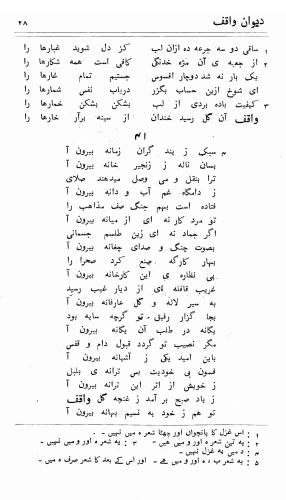 دیوان واقف
۲۸
۱ ساقی دو سه جرعه ده ازان لب کز دل شوید غبارها را
۲ از جعبهٔ آن مژه خدنگی کافی است همه شکارها را
یک بار نه شد دوچار افسوس جستیم تمام غارها را
ای شوخ ازین حساب بگزر دریاب نفس شمارها را
۳ کیفیت باده بردی از لب بشکن بشکن خمارها را
واقف آن گل رسید خندان از سینه برآر خارها را
۴ سبک ز بند گران زمانه بیرون آ
بسان ناله ز زنجیر خانه بیرون آ
ترا بنقل و می وصل میدهند صلای
ز دامگاه غم آب و دانه بیرون آ
فتاده است بهم جنگ صف مذاهب را
تو مرد کار نه ای از میانه بیرون آ
اگر جماد نه ای زین طلسم جسمانی
بصوت چنگ و صدای چغانه بیرون آ
بهار کارگه صنع کرد صحرا را
بی نظاره ی این کارخانه بیرون آ
غریب قافله ای از دیار غیب رسید
به سیر لاله و گل عارفانه بیرون آ
بجا گزار رفیق تو گرچه سایه بود
یگانه در طلب آن یگانه بیرون آ
مگر نصیب تو گردد قبول دام و قفس
باین امید یکی ز آشیانه بیرون آ
فسون بی خودیت بس ترانه ی بلبل
ز خویشی از اثر این ترانه بیرون آ
ز باد صبح بر آمد ز غنچه گل واقف
تو هم ز خود به نسیم بهانه بیرون آ
۱ : اس غزل کا پانچواں اور چھٹا شعر ہ میں نہیں -
۲ : یہ تین شعر ہ اور و میں ہیں - ۳ : یہ شعر ہ اور و میں نہیں -
۴ : د میں یہ غزل نہیں -
۵ : یہ شعر ب ، ہ اور و میں ہے - اور اس کے بعد کا شعر صرف ہ میں -